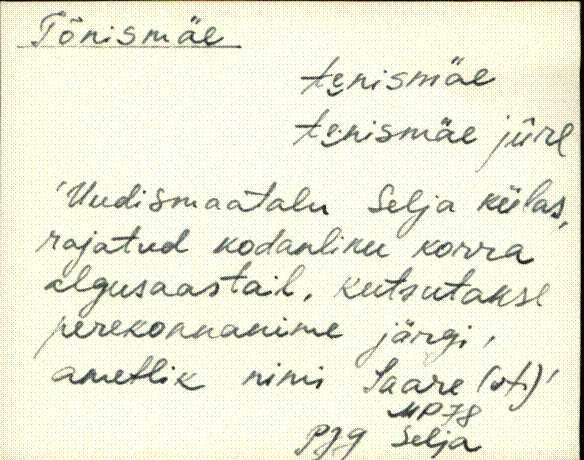 Tõnismäe
te̮nismäe
te̮nismäe jüre
'Uudismaatalu Selja külas,
rajatud kodanliku korra
algusaastail, kutsutakse
perekonnanime järgi,
ametlik nimi Saare (vt.)'
MP78
PJg Selja